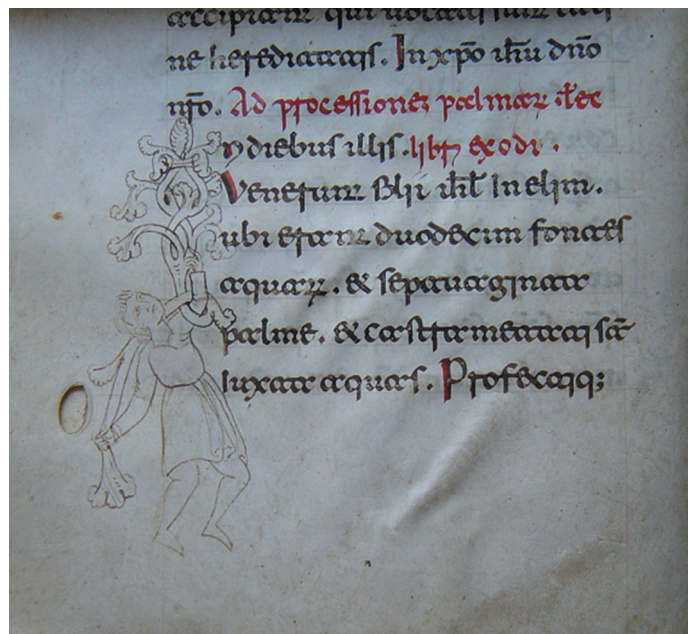 accipiant qui vocati sunt eter
ne hereditatis. In xpo ihu dno
nro. Ad processiones palmarum lec
In diebus illis. libri exodi.
Venerunt filii isrl In elim.
ubi erant duodecim fontes
aquarum. & septuaginta
palme. & castrametati sunt
iuxta aquas. Profectiq;